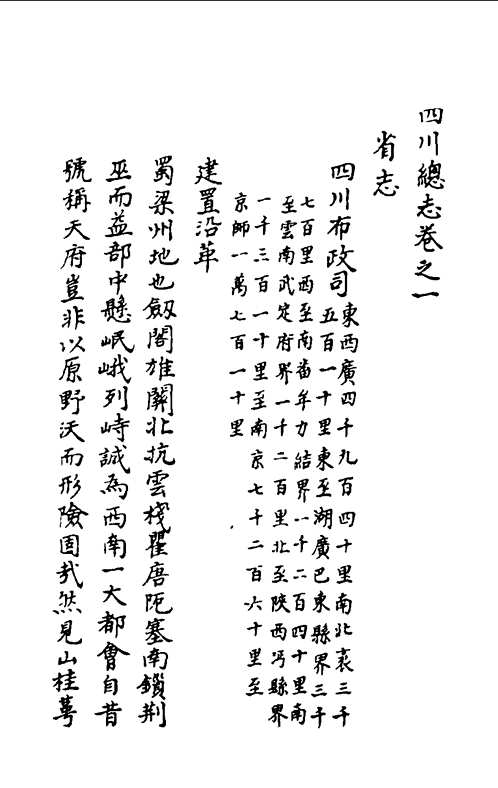 四川總志卷之一
省志
四川布政司
東西廣四千九百四十里南北袤三千
五百一十里東至湖廣巴東縣界三千
七百里西至南畨年力結界一千二百四十里南
至雲南武定府界一千二百里北至陝西沔縣界
一千三百一十里至南京七千二百六十里至
京師一萬七百一十里
建置沿革
蜀梁州地也劔閣雄關北抗雲棧瞿唐阨塞南鎖荆
巫而益部中懸岷峨列峙誠為西南一大都會自昔
號稱天府豈非以原野沃而形險固哉然見山桂萼